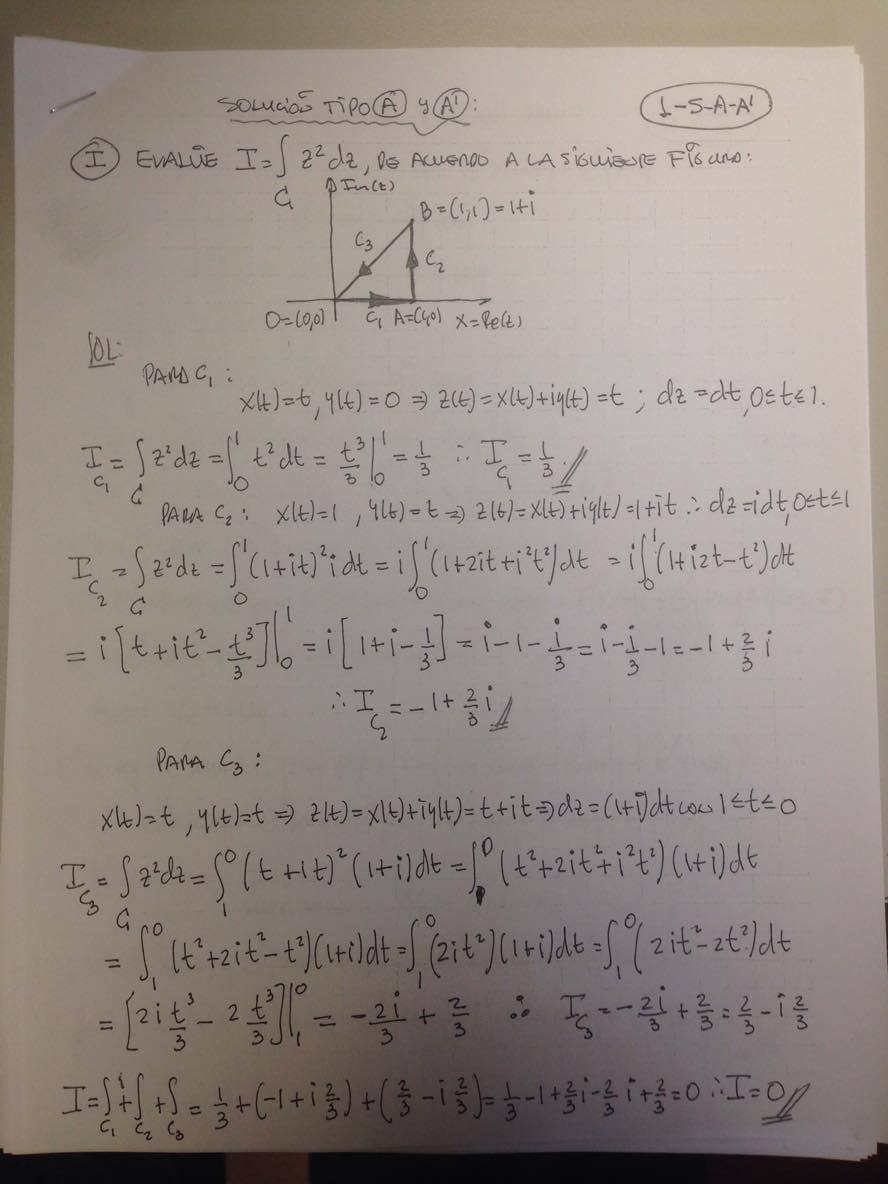 SOLUCIÓN TIPO A Y A':
1-S-A-A'
I EVALÚE I=∫_C z²dz, DE ACUERDO A LA SIGUIENTE FIGURA:
Im(t)
B=(1,1)=1+i
C₃
C₂
O=(0,0)
C₁ A=(1,0) X=Re(t)
SOL:
PARA C₁:
x(t)=t, y(t)=0 ⇒ z(t)=x(t)+iy(t)=t ; dz=dt, 0≤t≤1.
I_C₁=∫_C z²dz=∫₀¹ t²dt = t³/3|₀¹ = 1/3 ∴ I_C₁=1/3.
PARA C₂: x(t)=1, y(t)=t ⇒ z(t)=x(t)+iy(t)=1+it ∴ dz=idt, 0≤t≤1
I_C₂=∫_C z²dz=∫₀¹(1+it)²idt=i∫₀¹(1+2it+i²t²)dt=i∫₀¹(1+i2t-t²)dt
=i[t+it²-t³/3]|₀¹=i[1+i-1/3]=i-1-i/3=i-i/3-1=-1+2/3 i
∴ I_C₂=-1+2/3 i
PARA C₃:
x(t)=t, y(t)=t ⇒ z(t)=x(t)+iy(t)=t+it ⇒ dz=(1+i)dt con 1≤t≤0
I_C₃=∫_C z²dz=∫₁⁰(t+it)²(1+i)dt=∫₁⁰(t²+2it²+i²t²)(1+i)dt
=∫₁⁰(t²+2it²-t²)(1+i)dt=∫₁⁰(2it²)(1+i)dt=∫₁⁰(2it²-2t²)dt
=[2i t³/3-2 t³/3]|₁⁰=-2i/3+2/3 ∴ I_C₃=-2i/3+2/3=2/3-i 2/3
I=∫_C₁+∫_C₂+∫_C₃=1/3+(-1+i 2/3)+(2/3-i 2/3)=1/3-1+2/3 i-2/3 i+2/3=0 ∴ I=0